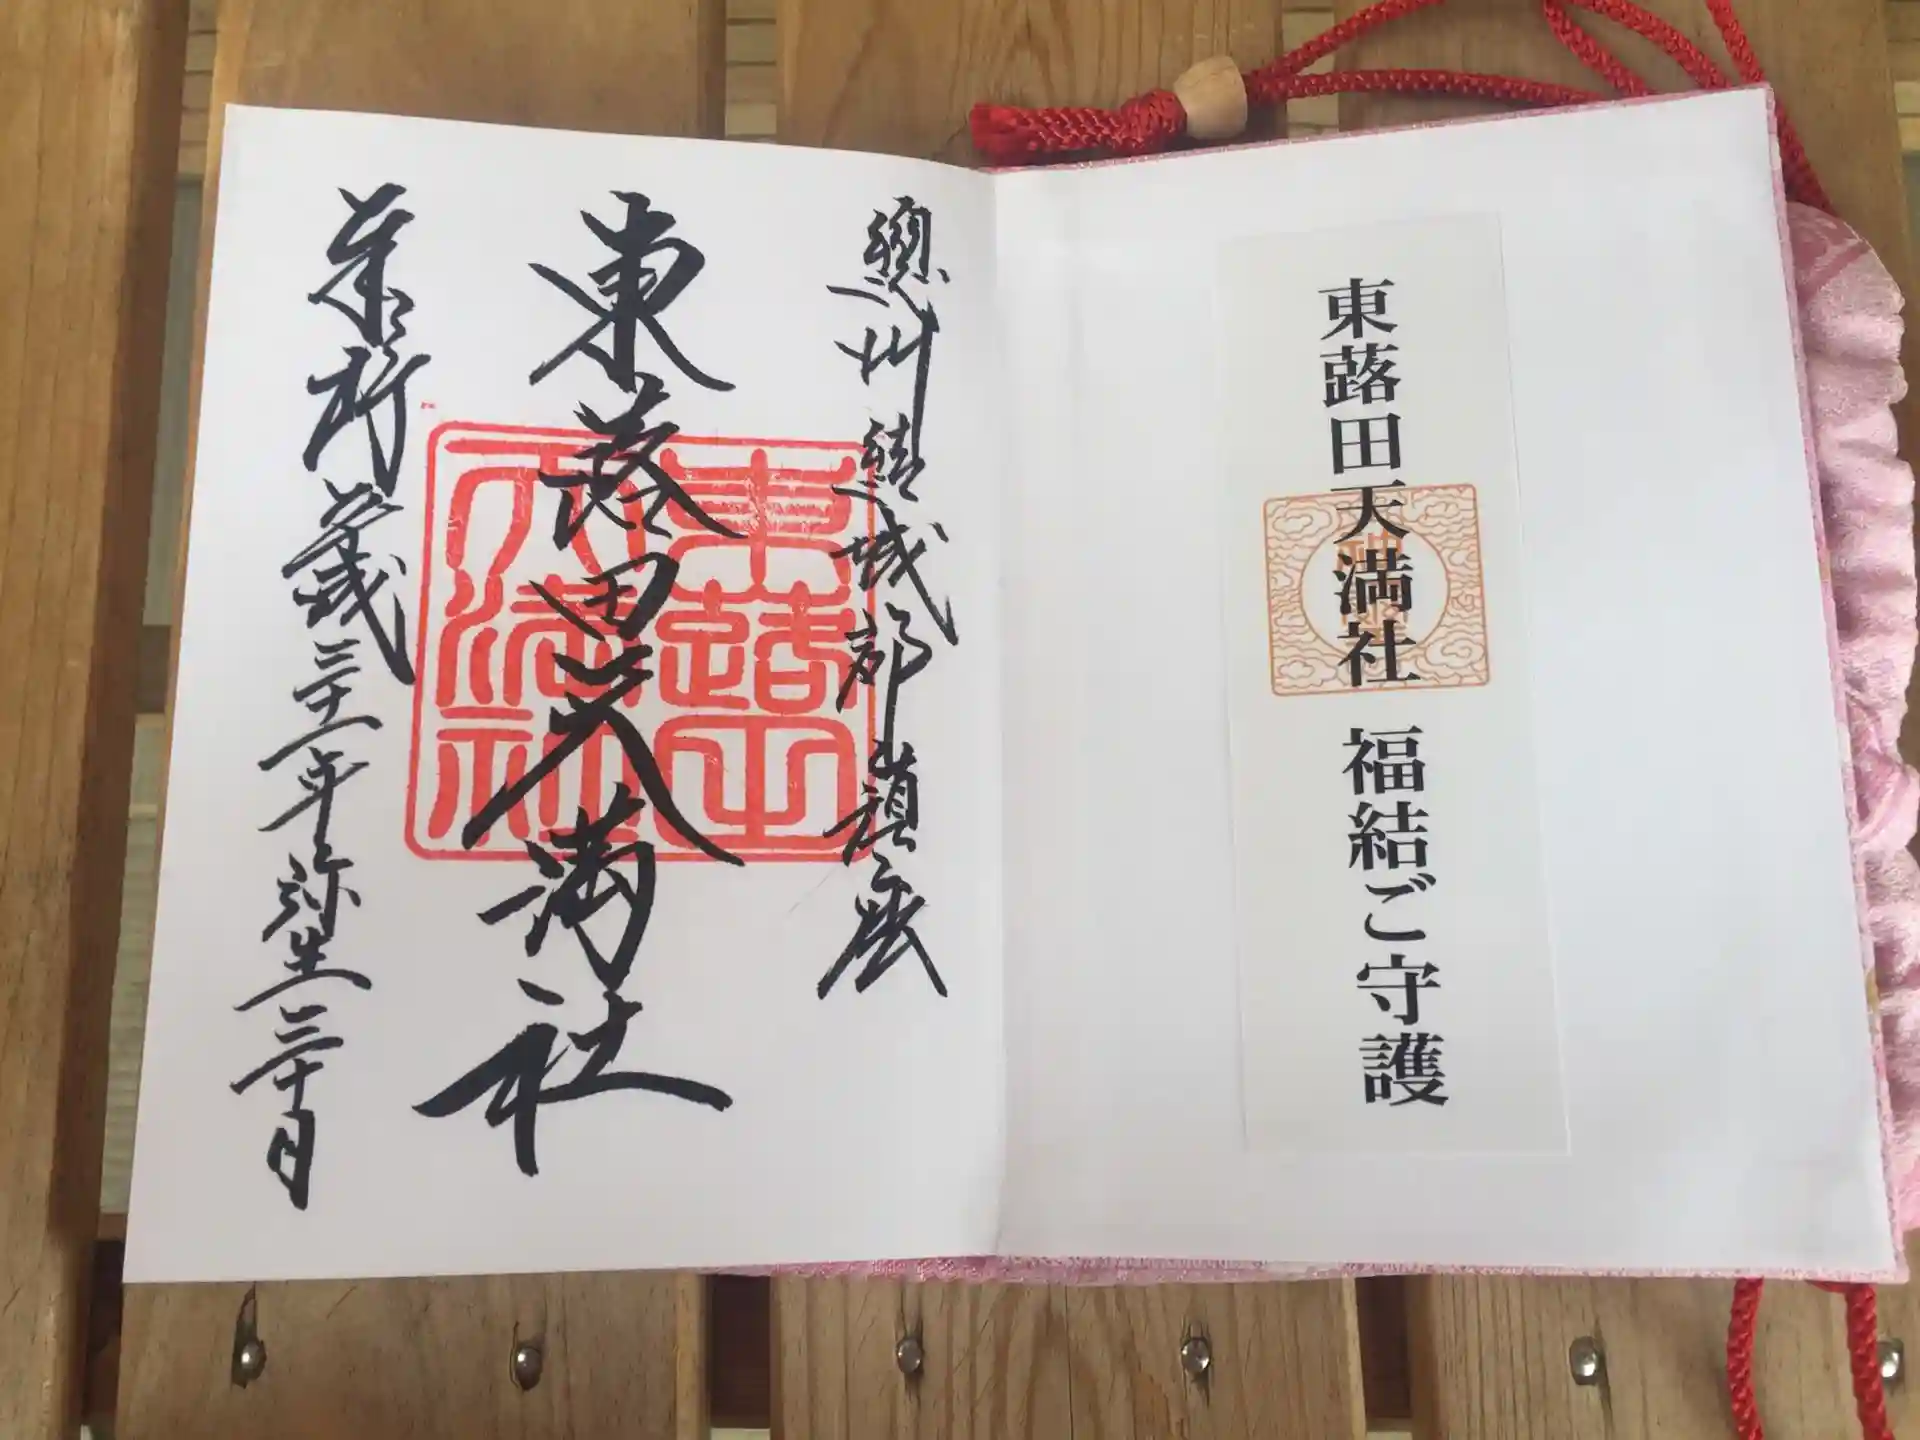 東蕗田天満社 福結ご守護
總州結城郡鎮座
東蕗田天満社
奉拝 平成三十一年弥生三十日
東蕗田
天満社